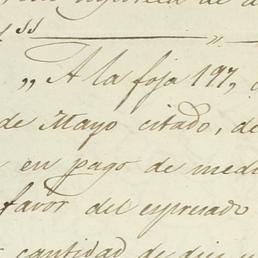 „ A la foja 197,
de Mayo citado, de
en pago de medi
favor del espresado
cantidad de dies y